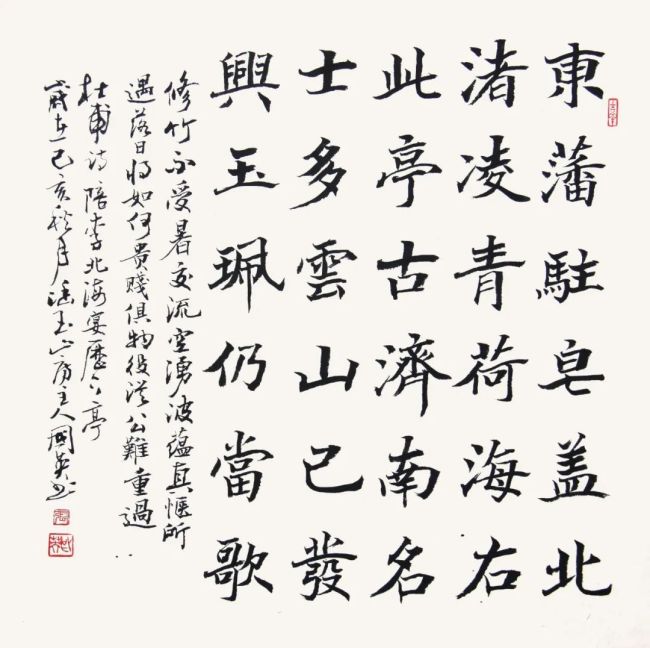 東藩駐皂盖北
渚凌青荷海右
此亭古濟南名
士多雲山已發
興玉珮仍當歌
修竹不受暑交流空湧波蕴真惬所
遇落日将如何贵賤俱物役從公難重過
杜甫诗陪李北海宴歷下亭
歲在己亥秋月玉山房主人國英书